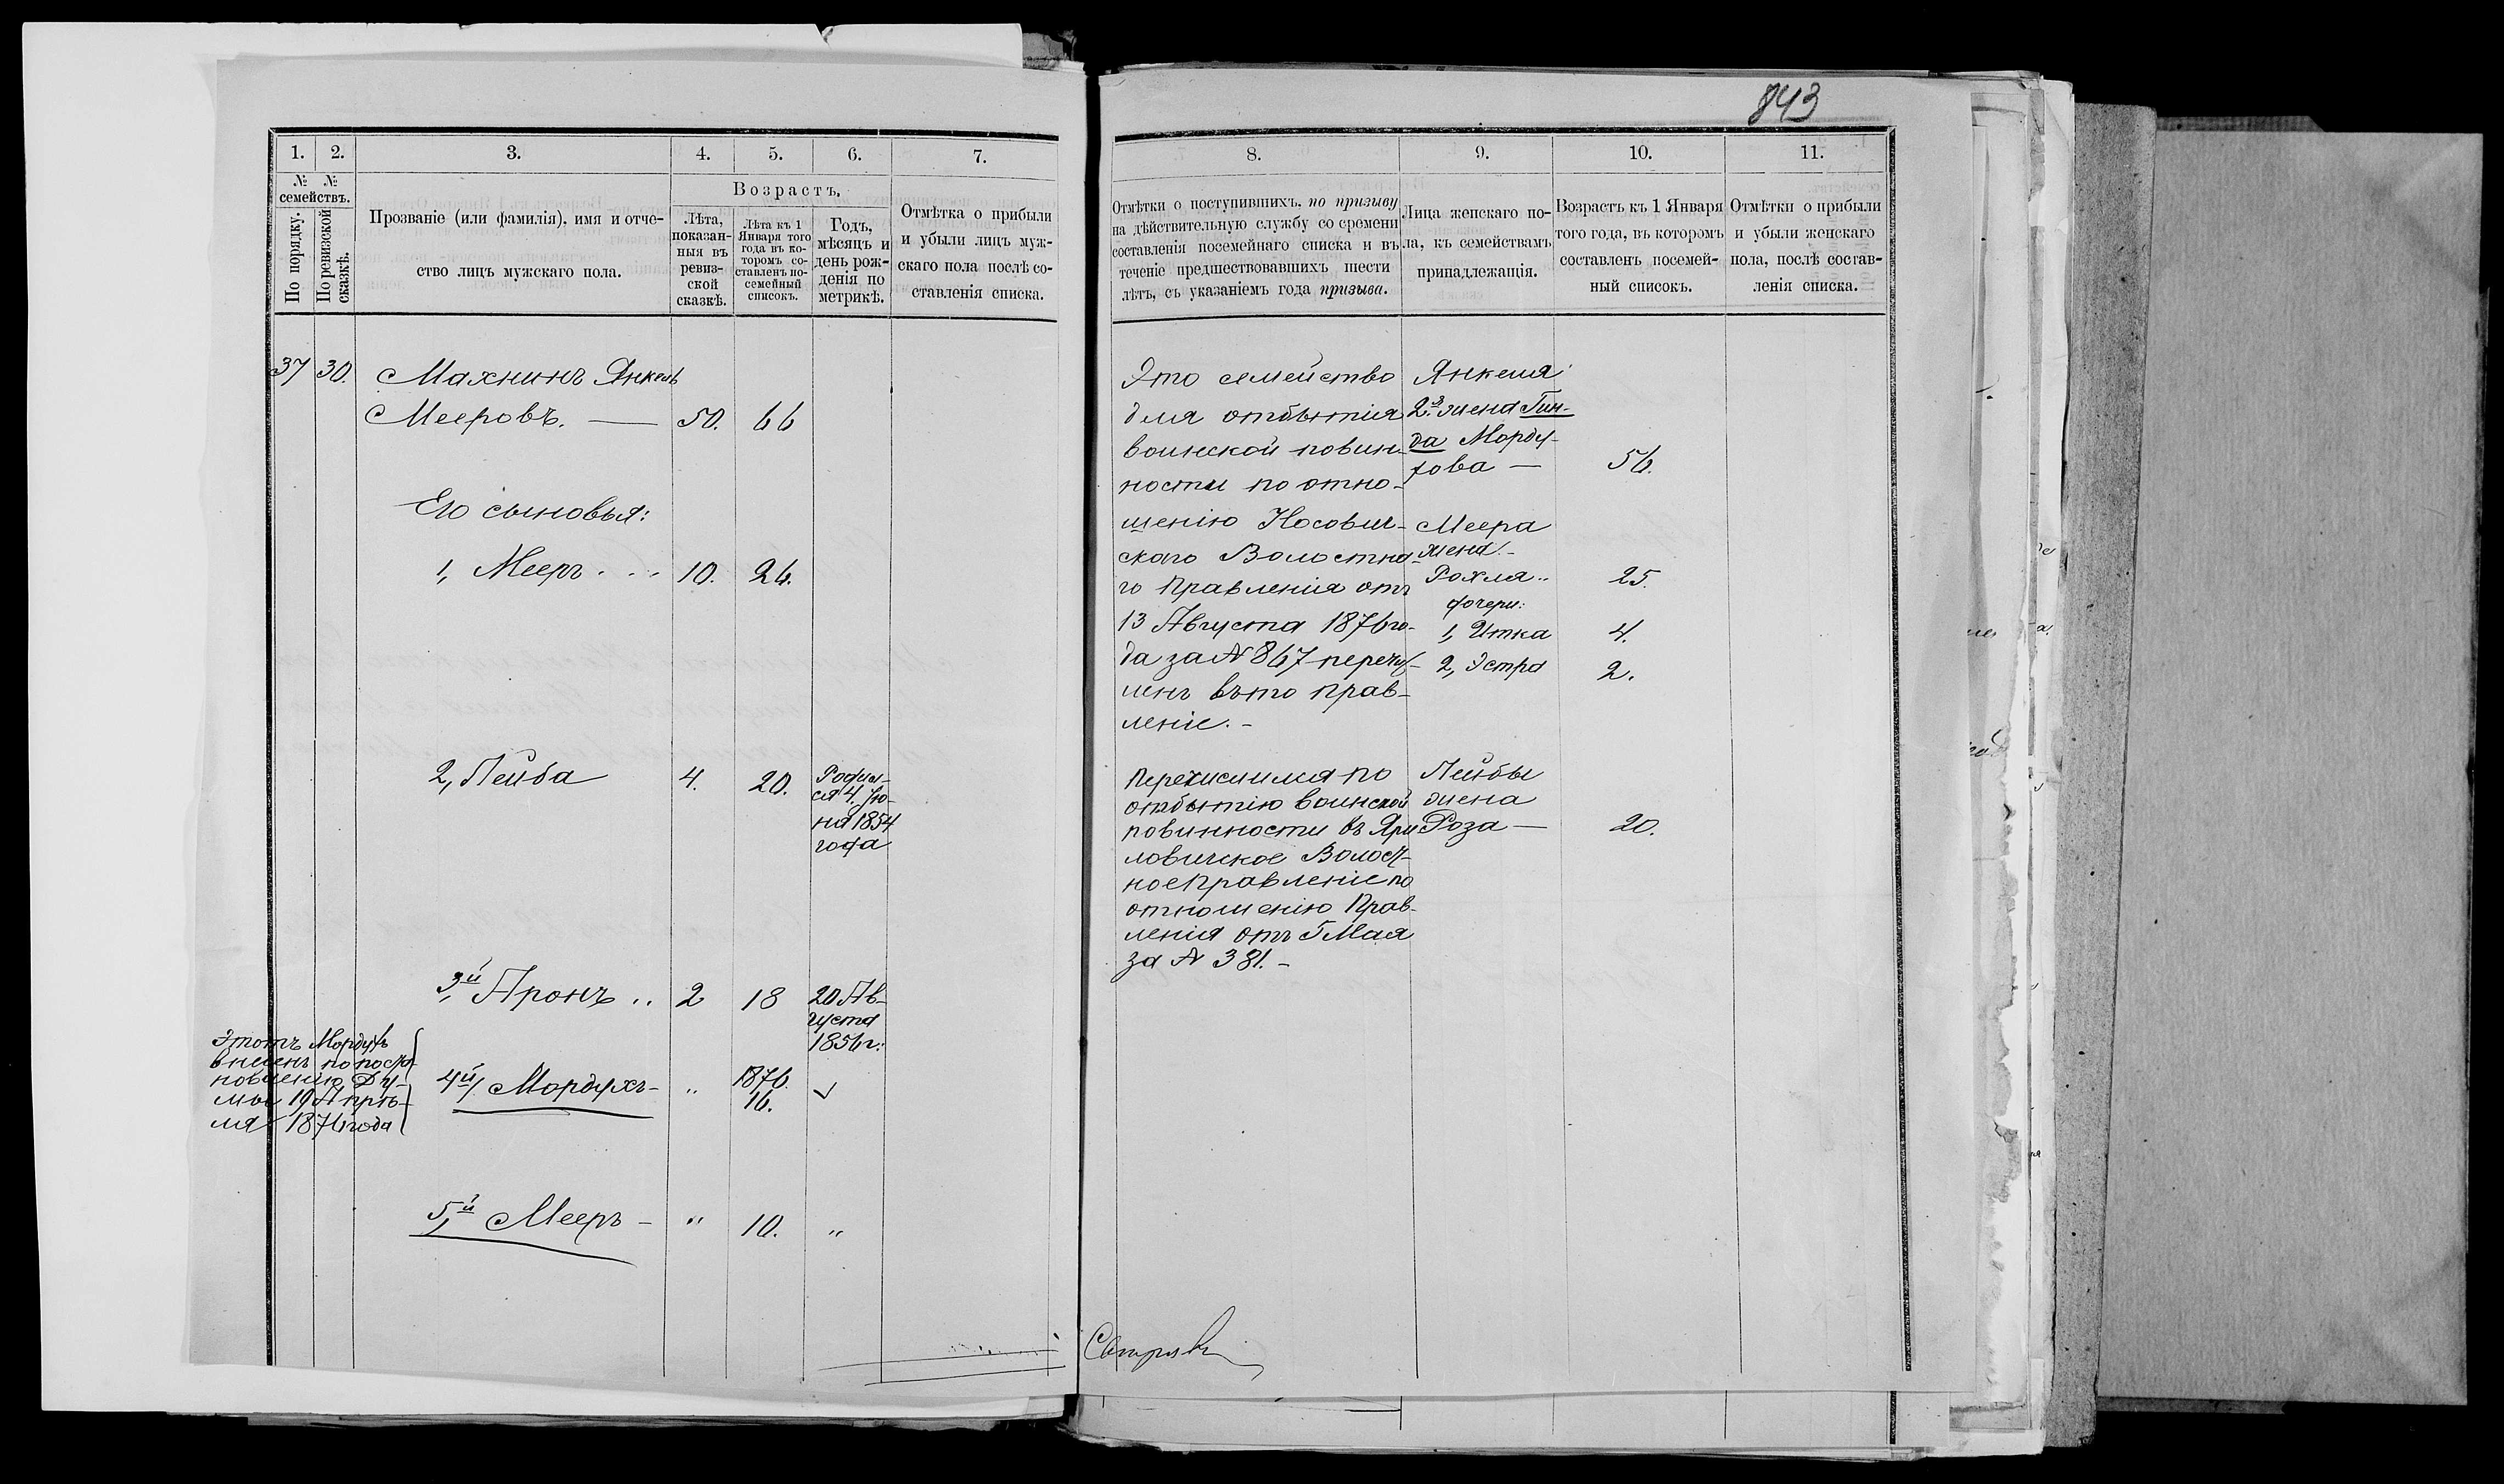 843
1. 2. 3. 4. 5. 6. 7.
№ № семействъ.
По порядку.
По ревизской сказкѣ.
Прозваніе (или фамилія), имя и отче-
ство лицъ мужскаго пола.
Возрастъ.
Лѣта,
показан-
ныя въ
ревиз-
ской
сказкѣ.
Лѣта къ 1
Января того
года въ ко-
торомъ со-
ставленъ по-
семейный
списокъ.
Годъ,
мѣсяцъ и
день рож-
денія по
метрикѣ.
Отмѣтка о прибыли
и убыли лицъ муж-
скаго пола послѣ со-
ставленія списка.
37 30. Махнинъ Янкель
Мееровъ. — 50. 66
Его сыновья:
1, Мееръ . . . 10. 26.
2, Лейба 4. 20. Родил-
ся 4. Iю-
ня 1854
года
3й Аронъ .. 2 18 20 Ав-
густа
1856 г.
Этотъ Мордухъ
внесенъ по поста-
новленію Ду-
мы 19 Апрѣ-
ля 1876 года
4й/ Мордухъ- „ 1876.
16.
5й Мееръ - „ 10. „
8. 9. 10. 11.
Отмѣтки о поступившихъ, по призыву
на дѣйствительную службу со времени
составленія посемейнаго списка и въ
теченіе предшествовавшихъ шести
лѣтъ, съ указаніемъ года призыва.
Лица женскаго по-
ла, къ семействамъ
принадлежащія.
Возрастъ къ 1 Января
того года, въ которомъ
составленъ посемей-
ный списокъ.
Отмѣтки о прибыли
и убыли женскаго
пола, послѣ состав-
ленія списка.
Это семейство
для отбытія
воинской повин-
ности по отно-
шенію Носович-
скаго Волостна-
го Правленія отъ
13 Августа 1876 го-
да за № 867 перечи-
ленъ въ то прав-
леніе. -
Перечислился по
отбытію воинской
повинности въ Яри
ловичское Волост-
ное Правленіе по
отношенію Прав-
ленія отъ 5 Мая
за № 381. -
Янкеля
2я жена Гин-
даМорду-
хова — 56.
Меера
жена. -
Рохля .. 25.
дочери:
1, Итка 4.
2, Эстра 2.
Лейбы
жена
Роза — 20.